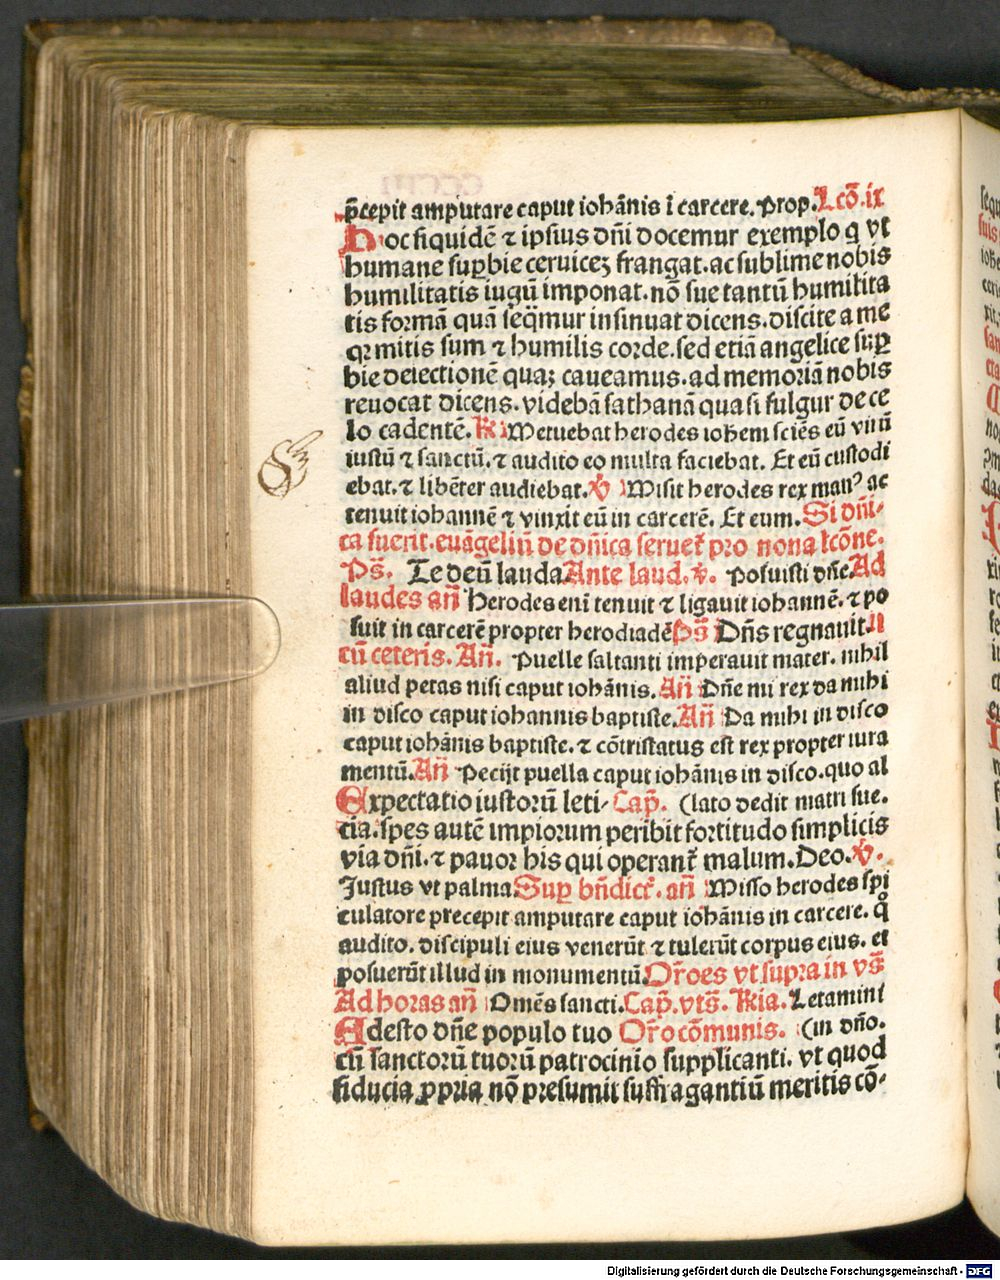 p̃cepit amputare caput ioħanis ĩ carcere. Prop. Lcõ. ix
Hoc siquidẽ ⁊ ipsius dñi docemur exemplo q̨ vt
humane suꝑbie ceruiceʒ frangat. ac sublime nobis
humilitatis iugũ imponat. nõ sue tantũ humilita
tis formã quã seq̃mur insinuat dicens. discite a me
qꝛ mitis sum ⁊ humilis corde. sed etiã angelice suꝑ
bie deiectionẽ quaʒ caueamus. ad memoriã nobis
reuocat dicens. videbã sathanã quasi fulgur de ce
lo cadentẽ. ℟ Metuebat herodes ioħem sciẽs eũ virũ
iustũ ⁊ sanctũ. ⁊ audito eo multa faciebat. Et eũ custodi
ebat. ⁊ libẽter audiebat. ℣ Misit herodes rex manꝰ ac
tenuit iohannẽ ⁊ vinxit eũ in carcerẽ. Et eum. Si dñi-
ca fuerit. euãgeliũ de dñica seruet᷑ pro nona łcõne.
Ps̃. Te deũ lauda Ante laud. ℣. Posuisti dñe Ad
laudes añ Herodes enĩ tenuit ⁊ ligauit iohannẽ. ⁊ po
suit in carcerẽ propter herodiadẽ Ps̃ Dñs regnauit.
cũ ceteris. Añ. Puelle saltanti imperauit mater. nihil
aliud petas nisi caput ioħanis. Añ Dñe mi rex da mihi
in disco caput iohannis baptiste. Añ Da mihi in disco
caput ioħanis baptiste. ⁊ cõtristatus est rex propter iura
mentũ. Añ Pecijt puella caput ioħanis in disco. quo al
Expectatio iustorũ leti- Cap̃. (lato dedit matri sue.
cia. spes autẽ impiorum peribit fortitudo simplicis
via dñi. ⁊ pauor his qui operant᷑ malum. Deo. ℣.
Justus vt palma Suꝑ bñdict᷑. añ Misso herodes spi
culatore precepit amputare caput ioħanis in carcere. qͦ
audito. discipuli eius venerũt ⁊ tulerũt corpus eius. et
posuerũt illud in monumentũ. Or̃oes vt supra in vs̃
Ad horas añ Omẽs sancti. Cap̃. vts̃. ℟ia. Letamini
Adesto dñe populo tuo Or̃o cõmunis. (in dño.
cũ sanctorũ tuorũ patrocinio supplicanti. vt quod
fiducia ꝓpria nõ presumit suffragantiũ meritis cõ-
Digitalisierung gefördert durch die Deutsche Forschungsgemeinschaft - DFG